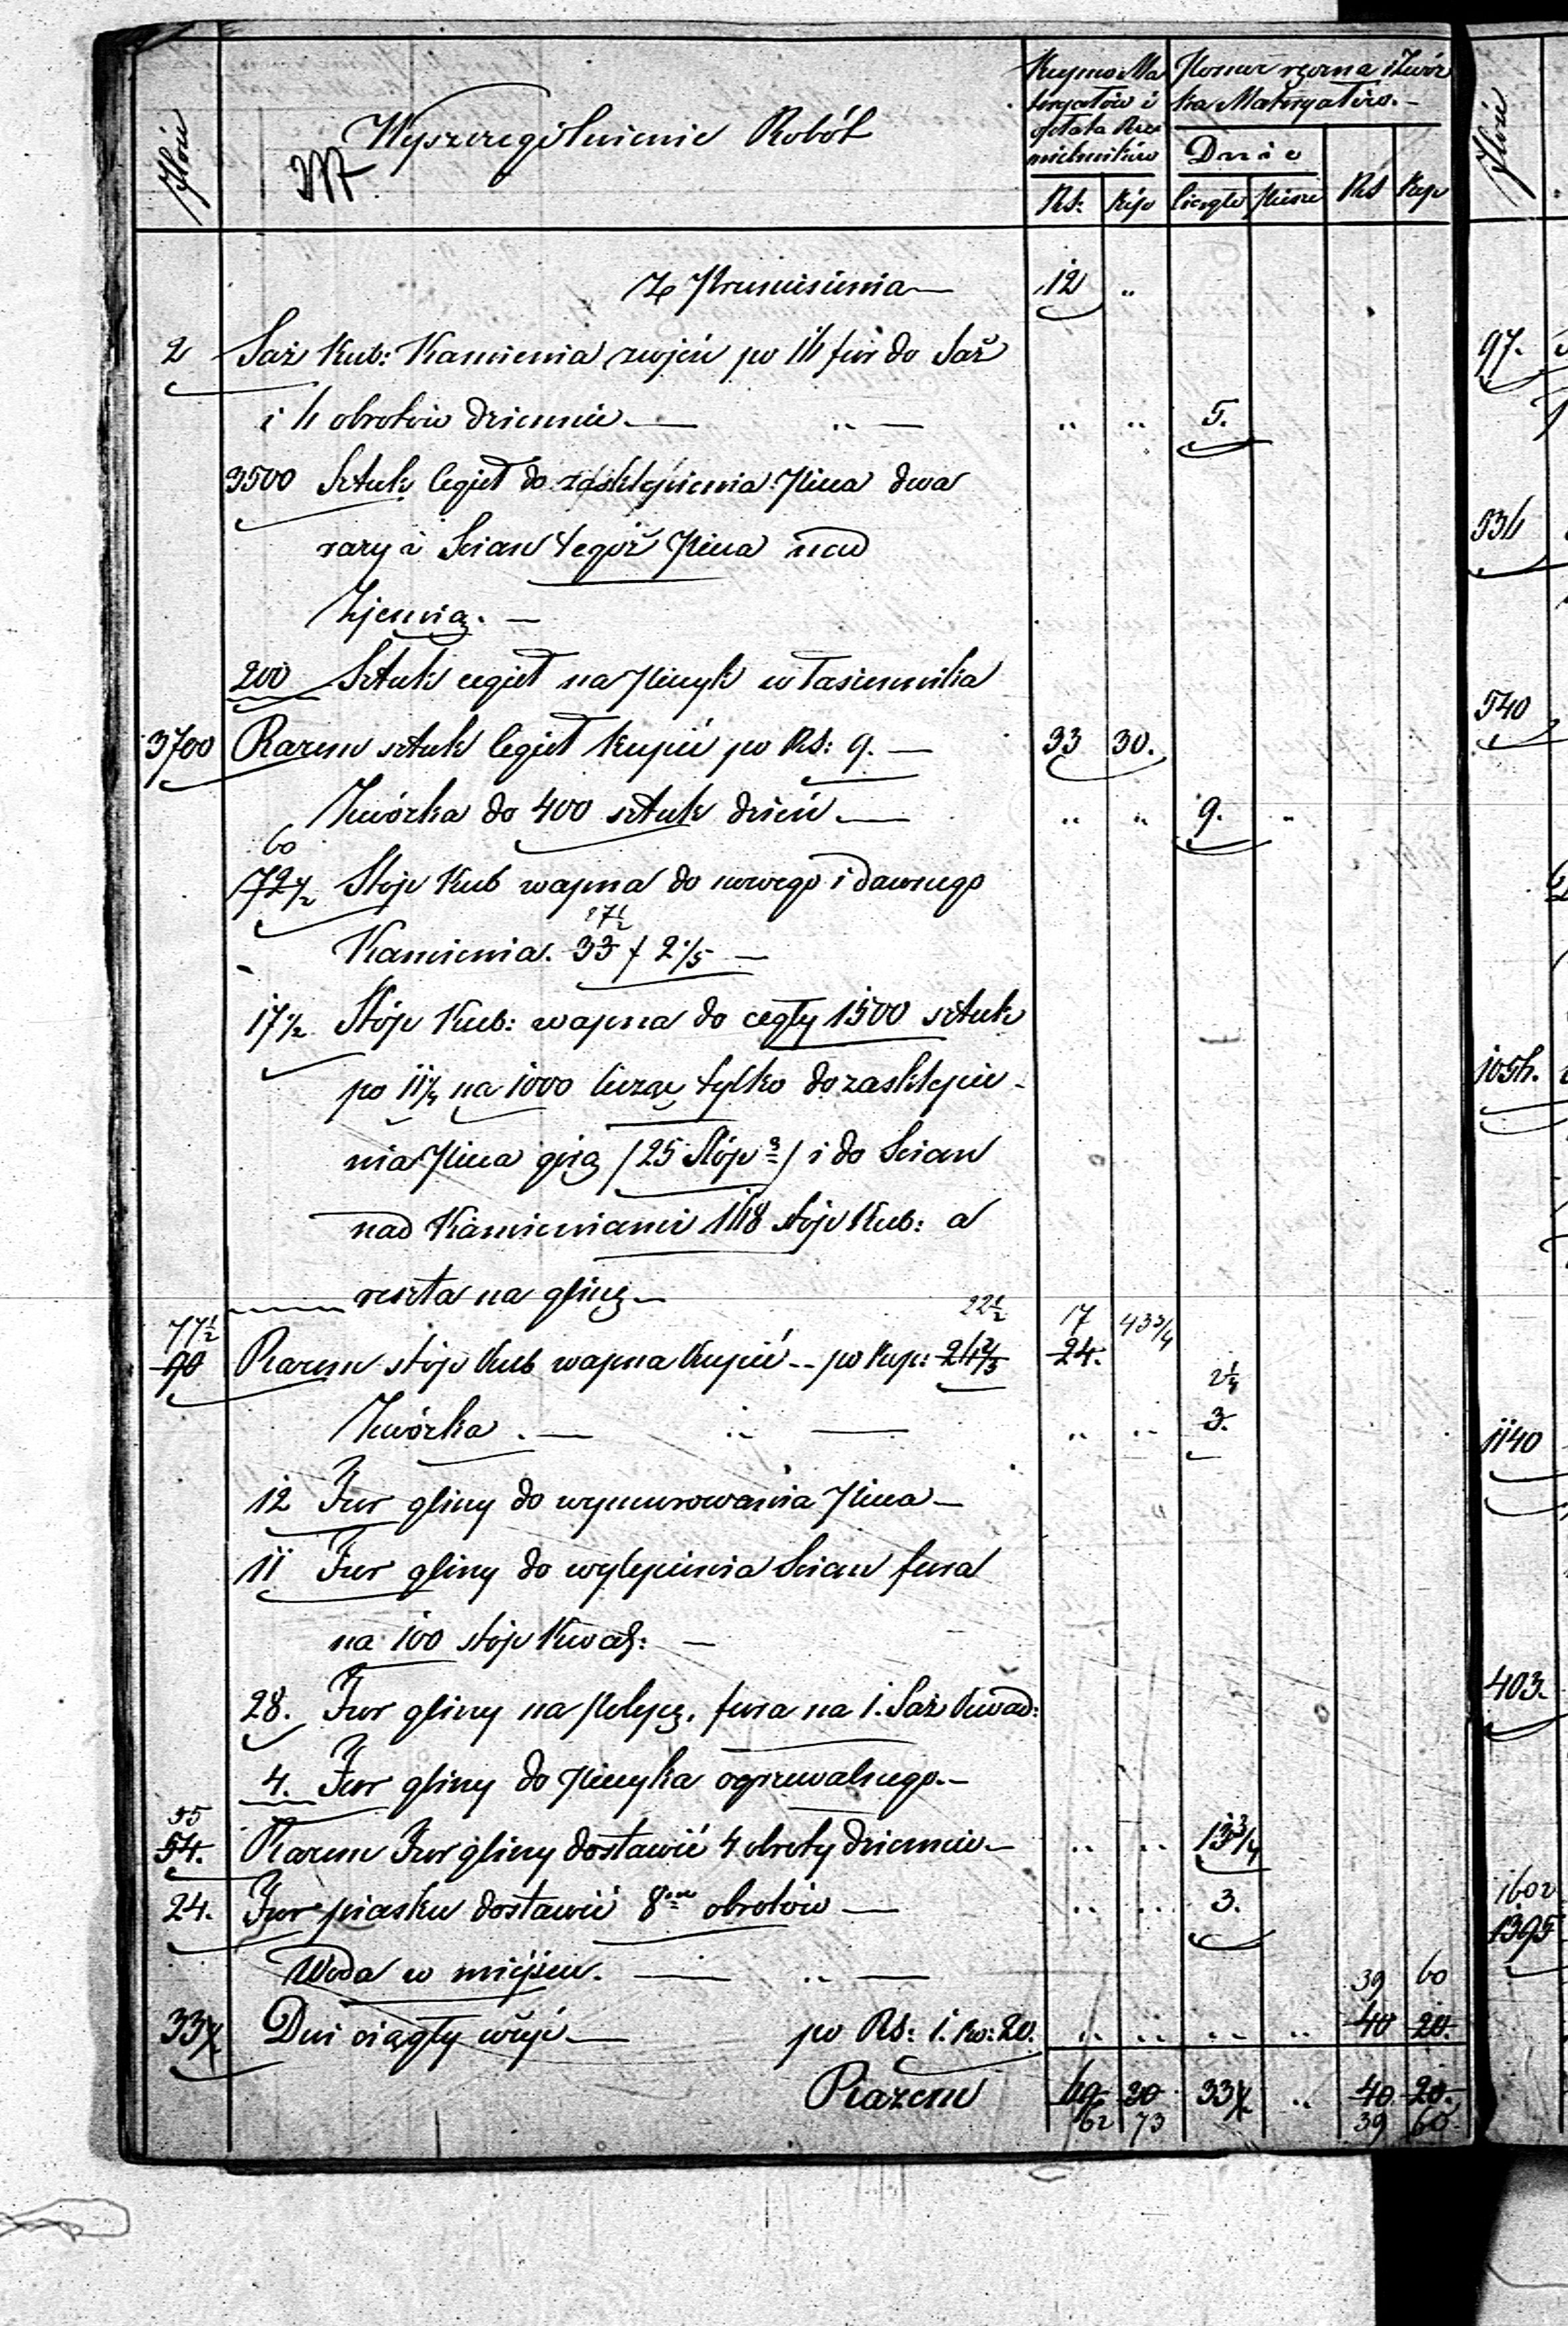 Ilość
Wyszczególnienie Robót
Kupno Ma
teryałów i
opłata Rze
mieślników
Pomoc ręczna i Zwóz
ka Materyałów.
Dnie
Rs: Kóp Ciągłe Piesze Rs Kop
Z Przeniesienia — 12 "
2 Saż Kub: Kamienia zwieść po 10 fur do Saż
i 4 obrotów dziennie — " — " " 5.
3500 Sztuk Cegieł do zasklepienia Pieca dwa
razy i Scian tegoż Pieca nad
Ziemią. —
200 Sztuk cegieł na Piecyk
3700 Razem sztuk Cegieł kupić po Rs: 9. — 33 30.
Zwózka do 400 sztuk dzień — " " 9. "
60
72½ Stóp Kub wapna do nowego i dawnego
27½
Kamienia. 33 f 2 1/5 —
17½ Stóp Kub: wapna do cegły 1500 sztuk
po 11¾ na 1000 licząc tylko do zasklepie-
nia Pieca (25 Stóp 3) i do Scian
nad Kamieniami 148 stóp Kub: a
reszta na glinę —
77½ 22½ 17 43¾
90 Razem stóp Kub wapna kupić — po Kop: 24.
2¼
Zwózka. — " — " " 3.
12 Fur gliny do wymurowania Pieca —
11 Fur gliny do wylepienia Scian fura
na 100 stóp Kwad: —
28. Fur gliny na Polepę, fura na 1. Saż Kwad:
4. Fur gliny do Piecyka ogrzewalnego. —
55
54. Razem Fur gliny dostawić 4 obroty dziennie — " " 13¾
24. Fur piasku dostawić 8 obrotów — " " 3.
Woda w miejscu. — " — 39 60
33 Dni ciągły użyć — po Rs: 1. ko: 20. " " " " 40 20.
Razem 69 30 33 " 40 20.
62 73 39 60